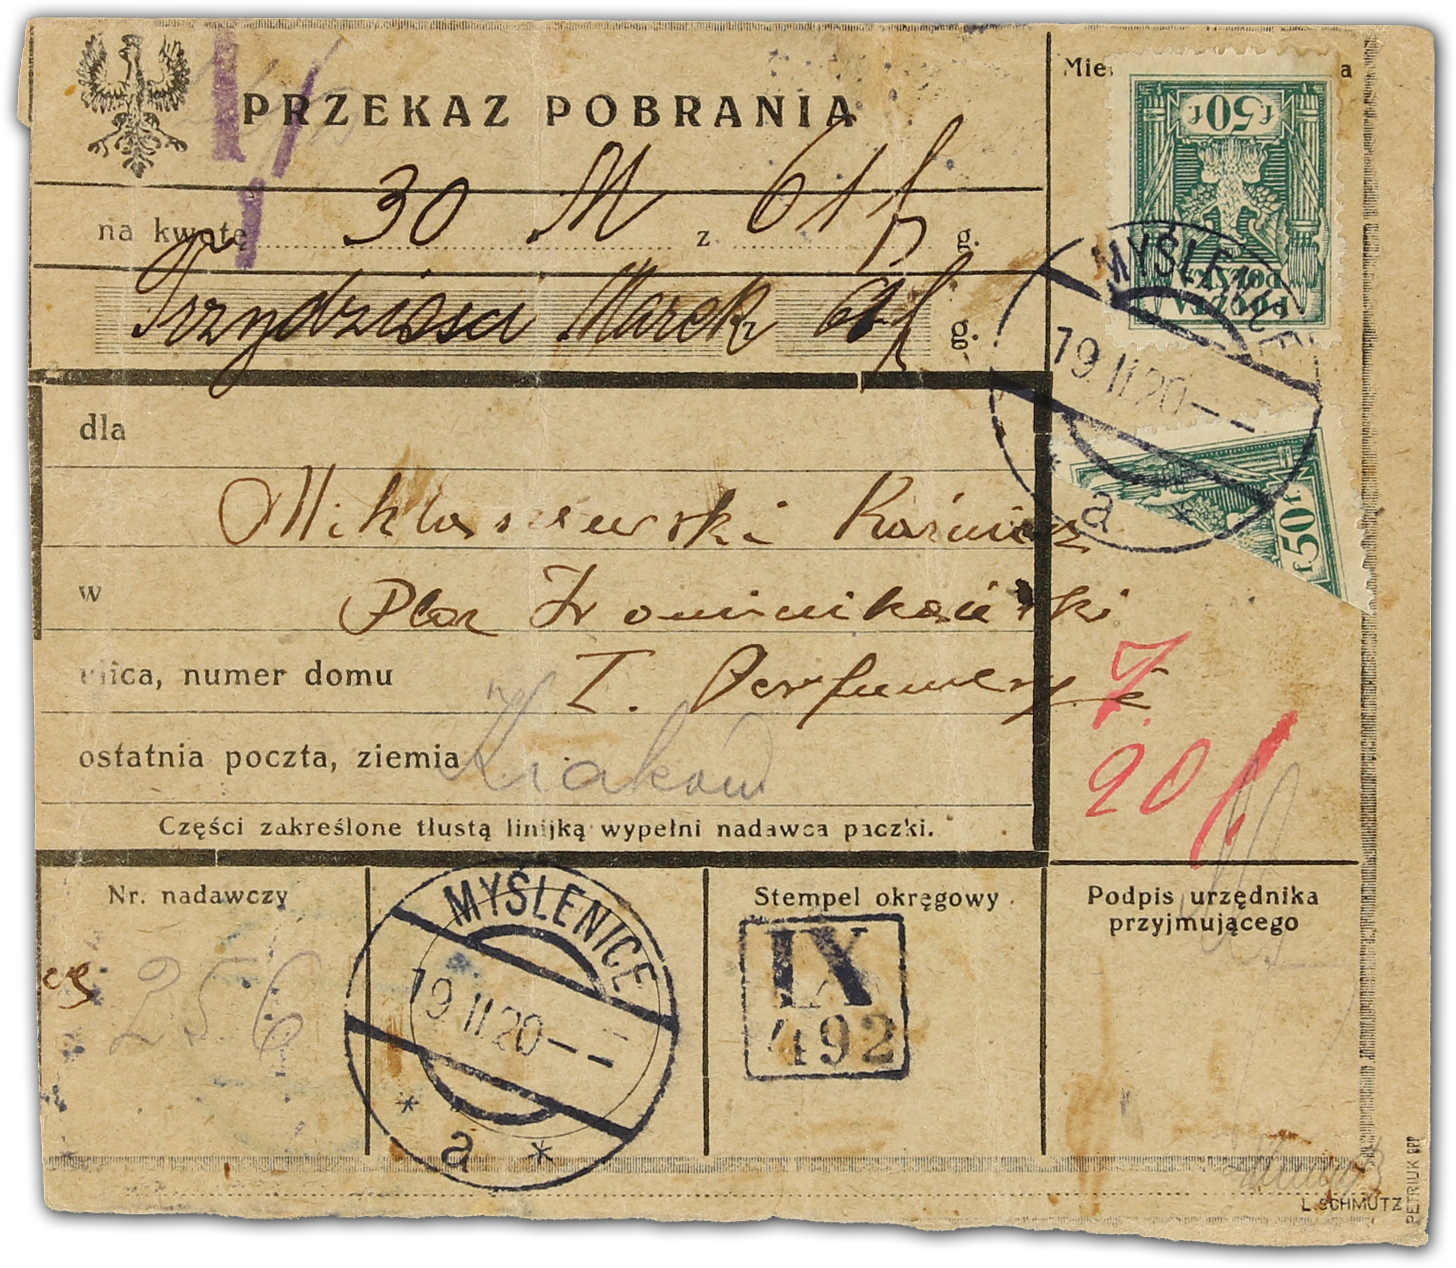 PRZEKAZ POBRANIA
na kwotę 30 M z 61 f g.
Trzydzieści Marek 61 f g.
dla
Miklaszewski Kazimierz
w Plac Dominikański
ulica, numer domu I. Perfumerya
ostatnia poczta, ziemia Kraków
Części zakreślone tłustą linijką wypełni nadawca paczki.
f50f
POCZTA
POLSKA
MYŚLENICE
19.II.20
a
50f
7.
20f
Nr. nadawczy
256
MYŚLENICE
19.II.20
a
Stempel okręgowy
IX
492
Podpis urzędnika
przyjmującego
L. SCHMUTZ
PETRIUK BPP